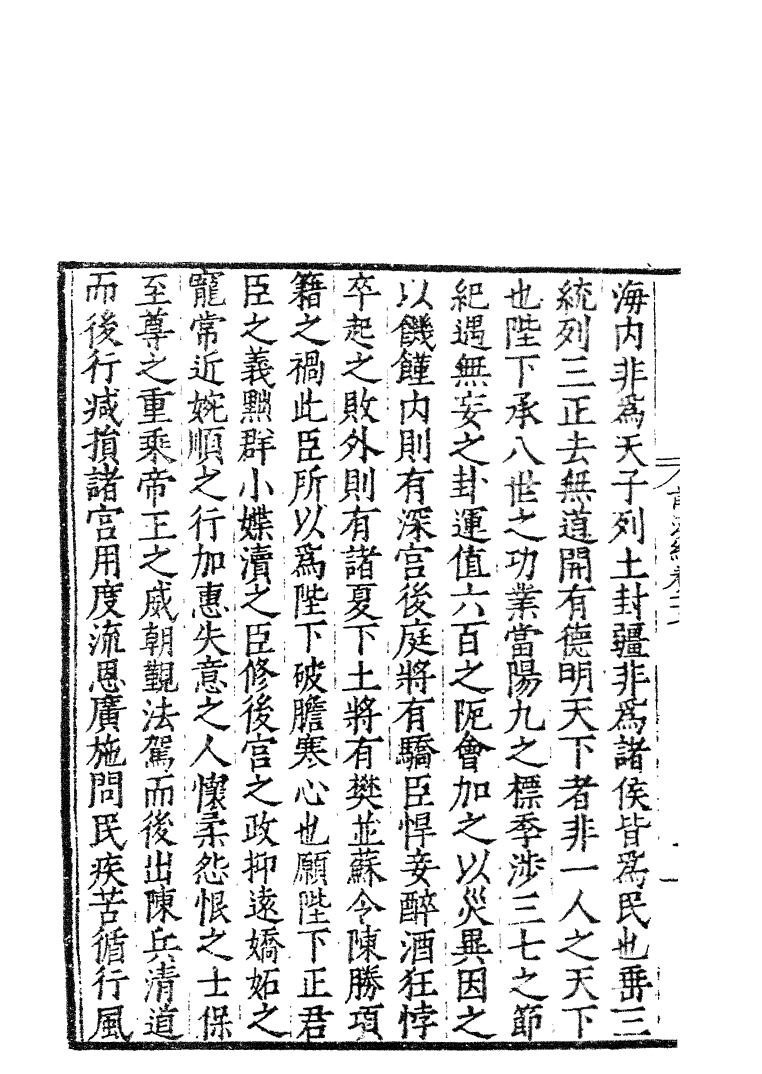 海内非爲天子列土封疆非爲諸侯皆爲民也垂三
統列三正去無道開有德明天下者非一人之天下
也陛下承八世之功業當陽九之標季涉三七之節
紀遇無妄之卦運值六百之阨會加之以災異因之
以饑饉内則有深宮後庭將有驕臣悍妾醉酒狂悖
卒起之敗外則有諸夏下土將有樊並蘇令陳勝項
籍之禍此臣所以爲陛下破膽寒心也願陛下正君
臣之義黜群小媟瀆之臣修後宮之政抑遠嬌妬之
寵常近婉順之行加惠失意之人懷柔怨恨之士保
至尊之重乘帝王之威朝覲法駕而後出陳兵清道
而後行減損諸宮用度流恩廣施問民疾苦循行風